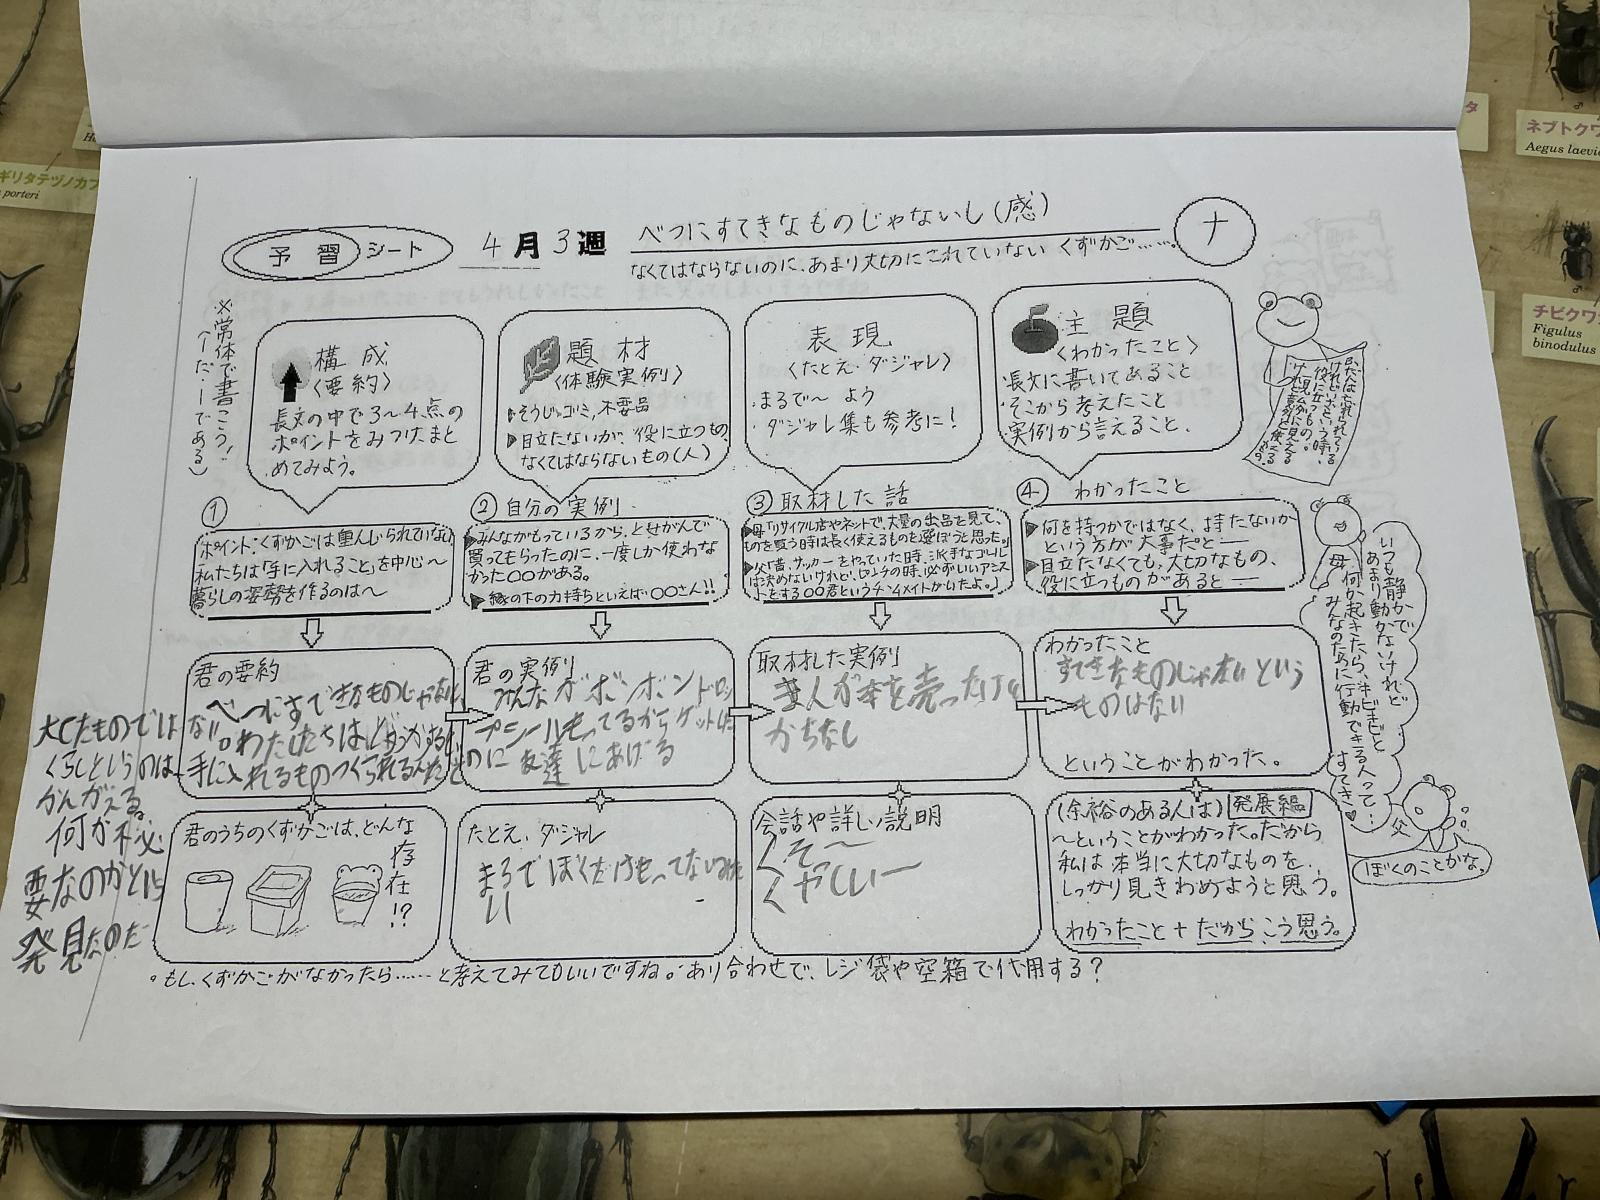 予習シート
4月3週
べつにすてきなものじゃないし(感)
なくてはならないのに、あまり大切にされていない くずかご……。
ナ
※常体で書こう!
(〜だ・〜である)
構成
〈要約〉
長文の中で3〜4点の
ポイントをみつけ、まと
めてみよう。
題材
〈体験実例〉
そうじ、ゴミ、不要品
目立たないが、役に立つもの、
なくてはならないもの(人)
表現
〈たとえ・ダジャレ〉
・まるで〜 よう
・ダジャレ集も参考に!
主題
〈わかったこと〉
・長文に書いてあること
・そこから考えたこと
・実例から言えること、
ふだんは忘れられている
けれどいざという時、
役に立つもの。
一見ムダに見える
けれど意外と使える
①
ポイント:くずかごは重んじられていない
私たちは「手に入れること」を中心〜
暮らしの姿勢を作るのは〜
②自分の実例
みんながもっているから、とせがんで
買ってもらったのに、一度しか使わな
かった〇〇がある。
縁の下の力持ちといえば・〇〇さん!!
③取材した話
母「リサイクル店やネットで、大量の出品を見て、
ものを買う時は長く使えるものを選ぼうと思った。」
父「昔、サッカーをやっていた時、派手なゴール
は決めないけれど、ピンチの時、必ずいいアシス
トをする〇〇君というチームメイトがいたよ。」
④ わかったこと
何を持つかではなく、持たないか
という方が大事だと──
目立たなくても、大切なもの、
役に立つものがあると──
母
いつも静かで
あまり動かないけれど
何か起きたら、キビキビと
みんなのために行動できる人って…
すてき♥
父
ぼくのことかな。
君の要約
べつにすてきなものじゃ
ない。わたしたちは
手に入れるもの
大したものでは
くらしというのは
かんがえる、
何が必
要なのかという
発見なのだ
君の実例
みんながボンボンドロッ
プシールもってるからゲットした
のに友達にあげる
取材した実例
かちなし
わかったこと
すてきなものじゃないという
ものはない
ということがわかった。
君のうちのくずかごは、どんな
存在!?
たとえ、ダジャレ
まるでぼくだけもってないみた
い
会話や詳しい説明
くそ〜
くやしいー
(余裕のある人は) 発展編
〜ということがわかった。だから
私は本当に大切なものを、
しっかり見きわめようと思う。
わかったこと + だからこう思う。
。もし、くずかごがなかったら……と考えてみてもいいですね。あり合わせで、レジ袋や空箱で代用する?
ギリタテヅノカブ
porteri
ネブトクワ
Aegus laevi
チビクワ
Figulus
binodulus